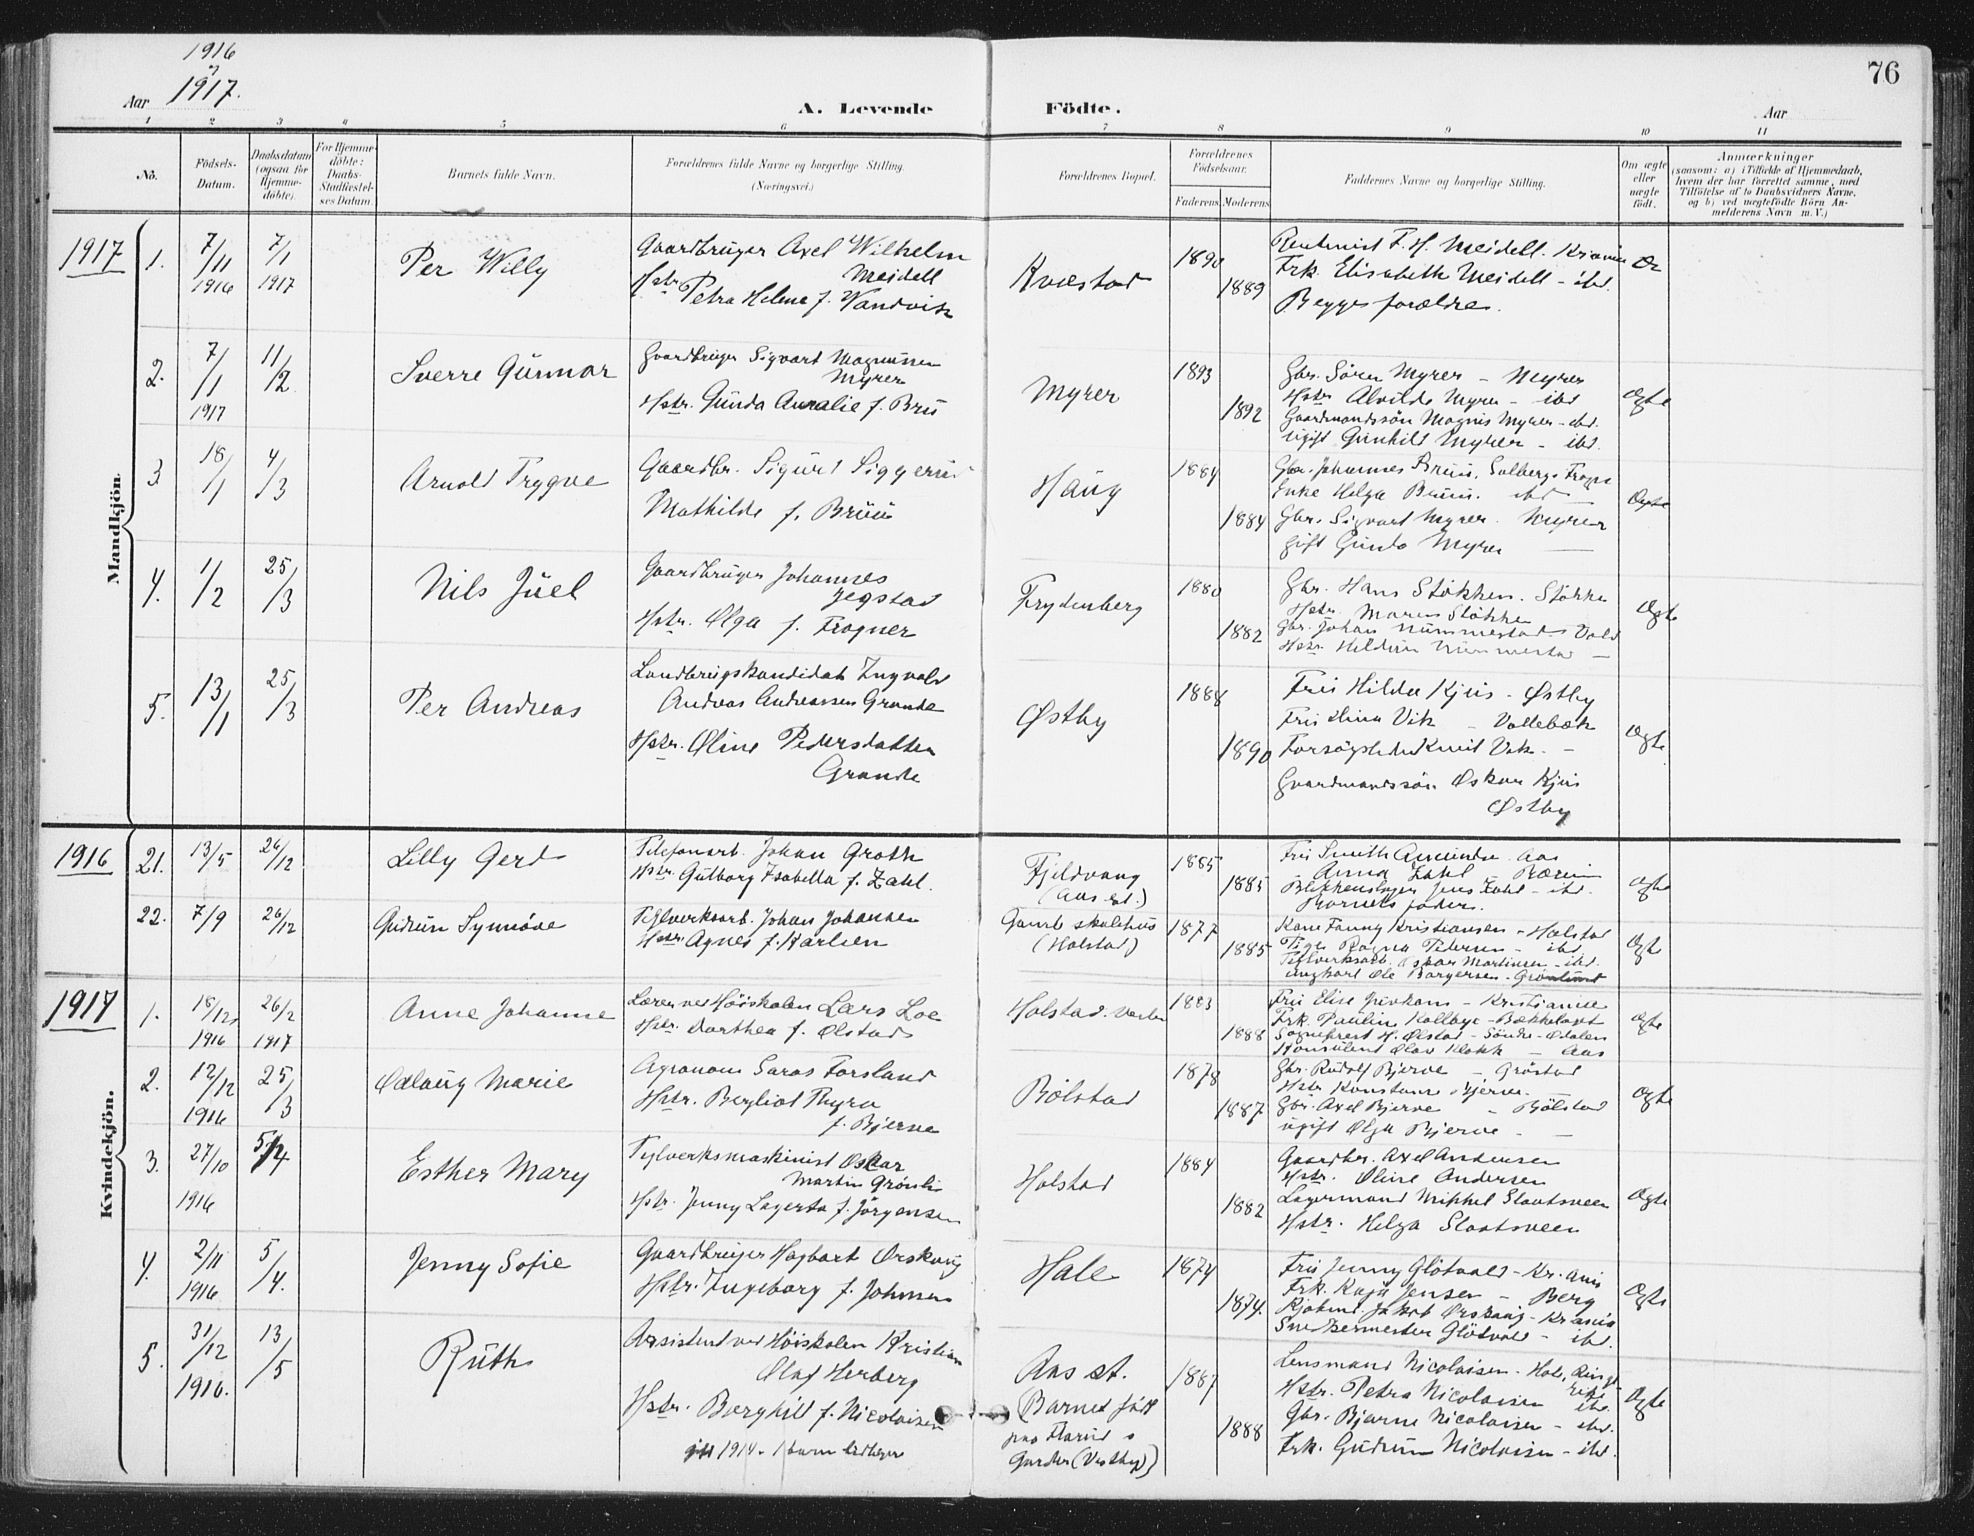 1916
1917.
76
Aar
A. Levende Födte.
Aar
1 2 3 4 5 6 7 8 9 10 11
No.
Födsels-
Datum.
Daabsdatum
(ogsaa for
Hjemme-
döbte).
For Hjemme-
döbte:
Daabs-
Stadfæstel-
ses Datum.
Barnets fulde Navn.
Forældrenes fulde Navne og borgerlige Stilling.
(Næringsvei.)
Forældrenes Bopæl.
Forældrenes
Födselsaar.
Faderens Moderens
Faddernes Navne og borgerlige Stilling.
Om ægte
eller
uægte
födt.
Anmærkninger
(saasom: a) i Tilfælde af Hjemmedaab,
hvem der har forrettet samme, med
Tilföielse af to Daabsvidners Navne,
og b) ved uægtefödte Börn An-
melderens Navn m. V.)
Mandkjön.
1917
1.
7/11
1916
7/1
1917
Per Willy
Gaardbruger Axel Wilhelm
Meidell
Hstr. Petra Helene f. Vandvik
Kvæstad
1890
1889
Rentenist F. H. Meidell.
Frk. Elisabeth Meidell - ibd.
Begge forældre.
2.
7/1
1917
11/2
Sverre Gunnar
Gaardbruger Sigvart Magnussen
Myrer
Hstr. Gunda Amalie f. Bru
Myrer
1893
1892
Gbr. Søren Myrer - Myrer
Hstr. Alvilde Myrer - ibd
Gaardmandssøn Magnus Myrer - ibd.
ugift Gunhild Myrer - ibd.
Ægte
3
18/1
4/3
Arnold Trygve
Gaardbr. Sigurd Siggerud
Mathilde f. Bruu
Haug
1884
1884
Gbr. Johannes Bruu, Solberg,
Enke Helga Bruu. ibd
Gbr. Sigvart Myrer. Myrer
gift Gunda Myrer
Ægte
4.
1/2
25/3
Nils Juel
Gaardbruger Johannes
Jegstad
Hstr. Olga f. Frogner
Frydenberg
1880
1882
Gbr. Hans Stökken. Stökke
Hstr. Maren Stökke
Gbr. Johan Nummestad
Hstr.
Ægte
5.
13/1
25/3
Per Andreas
Landbrugskandidat Ingvald
Andreas Andreassen Grande
Hstr. Oline Pedersdatter
Grande
Østby
1888
1890
Frk Hilda Kjus - Østby
Vik - Vollebæk
Knut Vik. -
Gaardmandssøn Oskar Kjus
Østby
Ægte
Kvindekjön.
1916
21.
13/5
26/12
Lilly Gerd
Telefonarb. Johan Groth
Hstr. Gutborg Isabella f. Zahl.
Fjeldvang
(Aas st.)
1885
1885
Aas
Anna Zahl Bærum
Blikkenslager Jens Zahl - ibd.
Barnets fader.
Ægte
22.
7/9
26/12
Gudrun Synnöve
Teglverksarb. Johan Johansen
Hstr. Agnes f. Karlsen
Gamle skolehus
(Holstad)
1877
1885
Kone Fanny Kristiansen - Holstad
Ragna Pedersen - ibd.
Teglverksarb. Oskar Martinsen - ibd.
ungkarl Ole Børgersen - Grønlund
Ægte
1917
1.
18/12
1916
26/2
1917
Anne Johanne
Lærer ved Høiskolen Lars Loe
Hstr. Dorthea f. Ølstad
Holstad
1883
1888
Kristiania
Frk. Pauline Kolbye - Bækkelaget
Sogneprest H. Ølstad - Söndre Odalen
Konsulent Olav Klokk - Aas
Ægte
2.
12/12
1916
25/3
Odlaug Marie
Agronom Saras Forsland
Hstr. Bergliot Thyra
f. Bjerve
Bölstad
1878
1887
Gbr. Rudolf Bjerve - Gröstad
Hstr. Konstanse Bjerve.
Gbr. Axel Bjerve - Bölstad
ugift Olga Bjerve -
Ægte
3.
27/10
1916
5/4
Esther Mary
Teglverksmaskinist Oskar
Martin Grönli
Hstr. Jenny Lagerta f. Jörgensen
Holstad
1884
1882
Gaardbr. Axel Andersen
Hstr. Oline Andersen
Lagermand Mikkel Slaatsveen
Hstr. Helga Slaatsveen
Ægte
4.
2/11
1916
5/4.
Jenny Sofie
Gaardbruger Hagbart Ørskaug
Hstr. Ingeborg f. Johnsen
Hale
1874
1874.
Fru Jenny Glötvold - Kr.ania
Frk. Kaja Jensen - Berg
Jakob Ørskaug - Kr.ania
Snedkermester Glötvold - ibd.
Ægte
5.
31/12
1916.
13/5
Ruth
Assistent ved Høiskolen Kristian
Olaf Herberg
Hstr. Borghill f. Nicolaisen
gift 1914. 1 barn
Aas st.
(Barnet född
paa
Garder (Vestby))
1887
1888
Lensmand Nicolaisen - Hole, Ringe-
rike
Hstr. Petra Nicolaisen ibd.
Gbr. Bjarne Nicolaisen - ibd.
Frk. Gudrun Nicolaisen - ibd.
Ægte